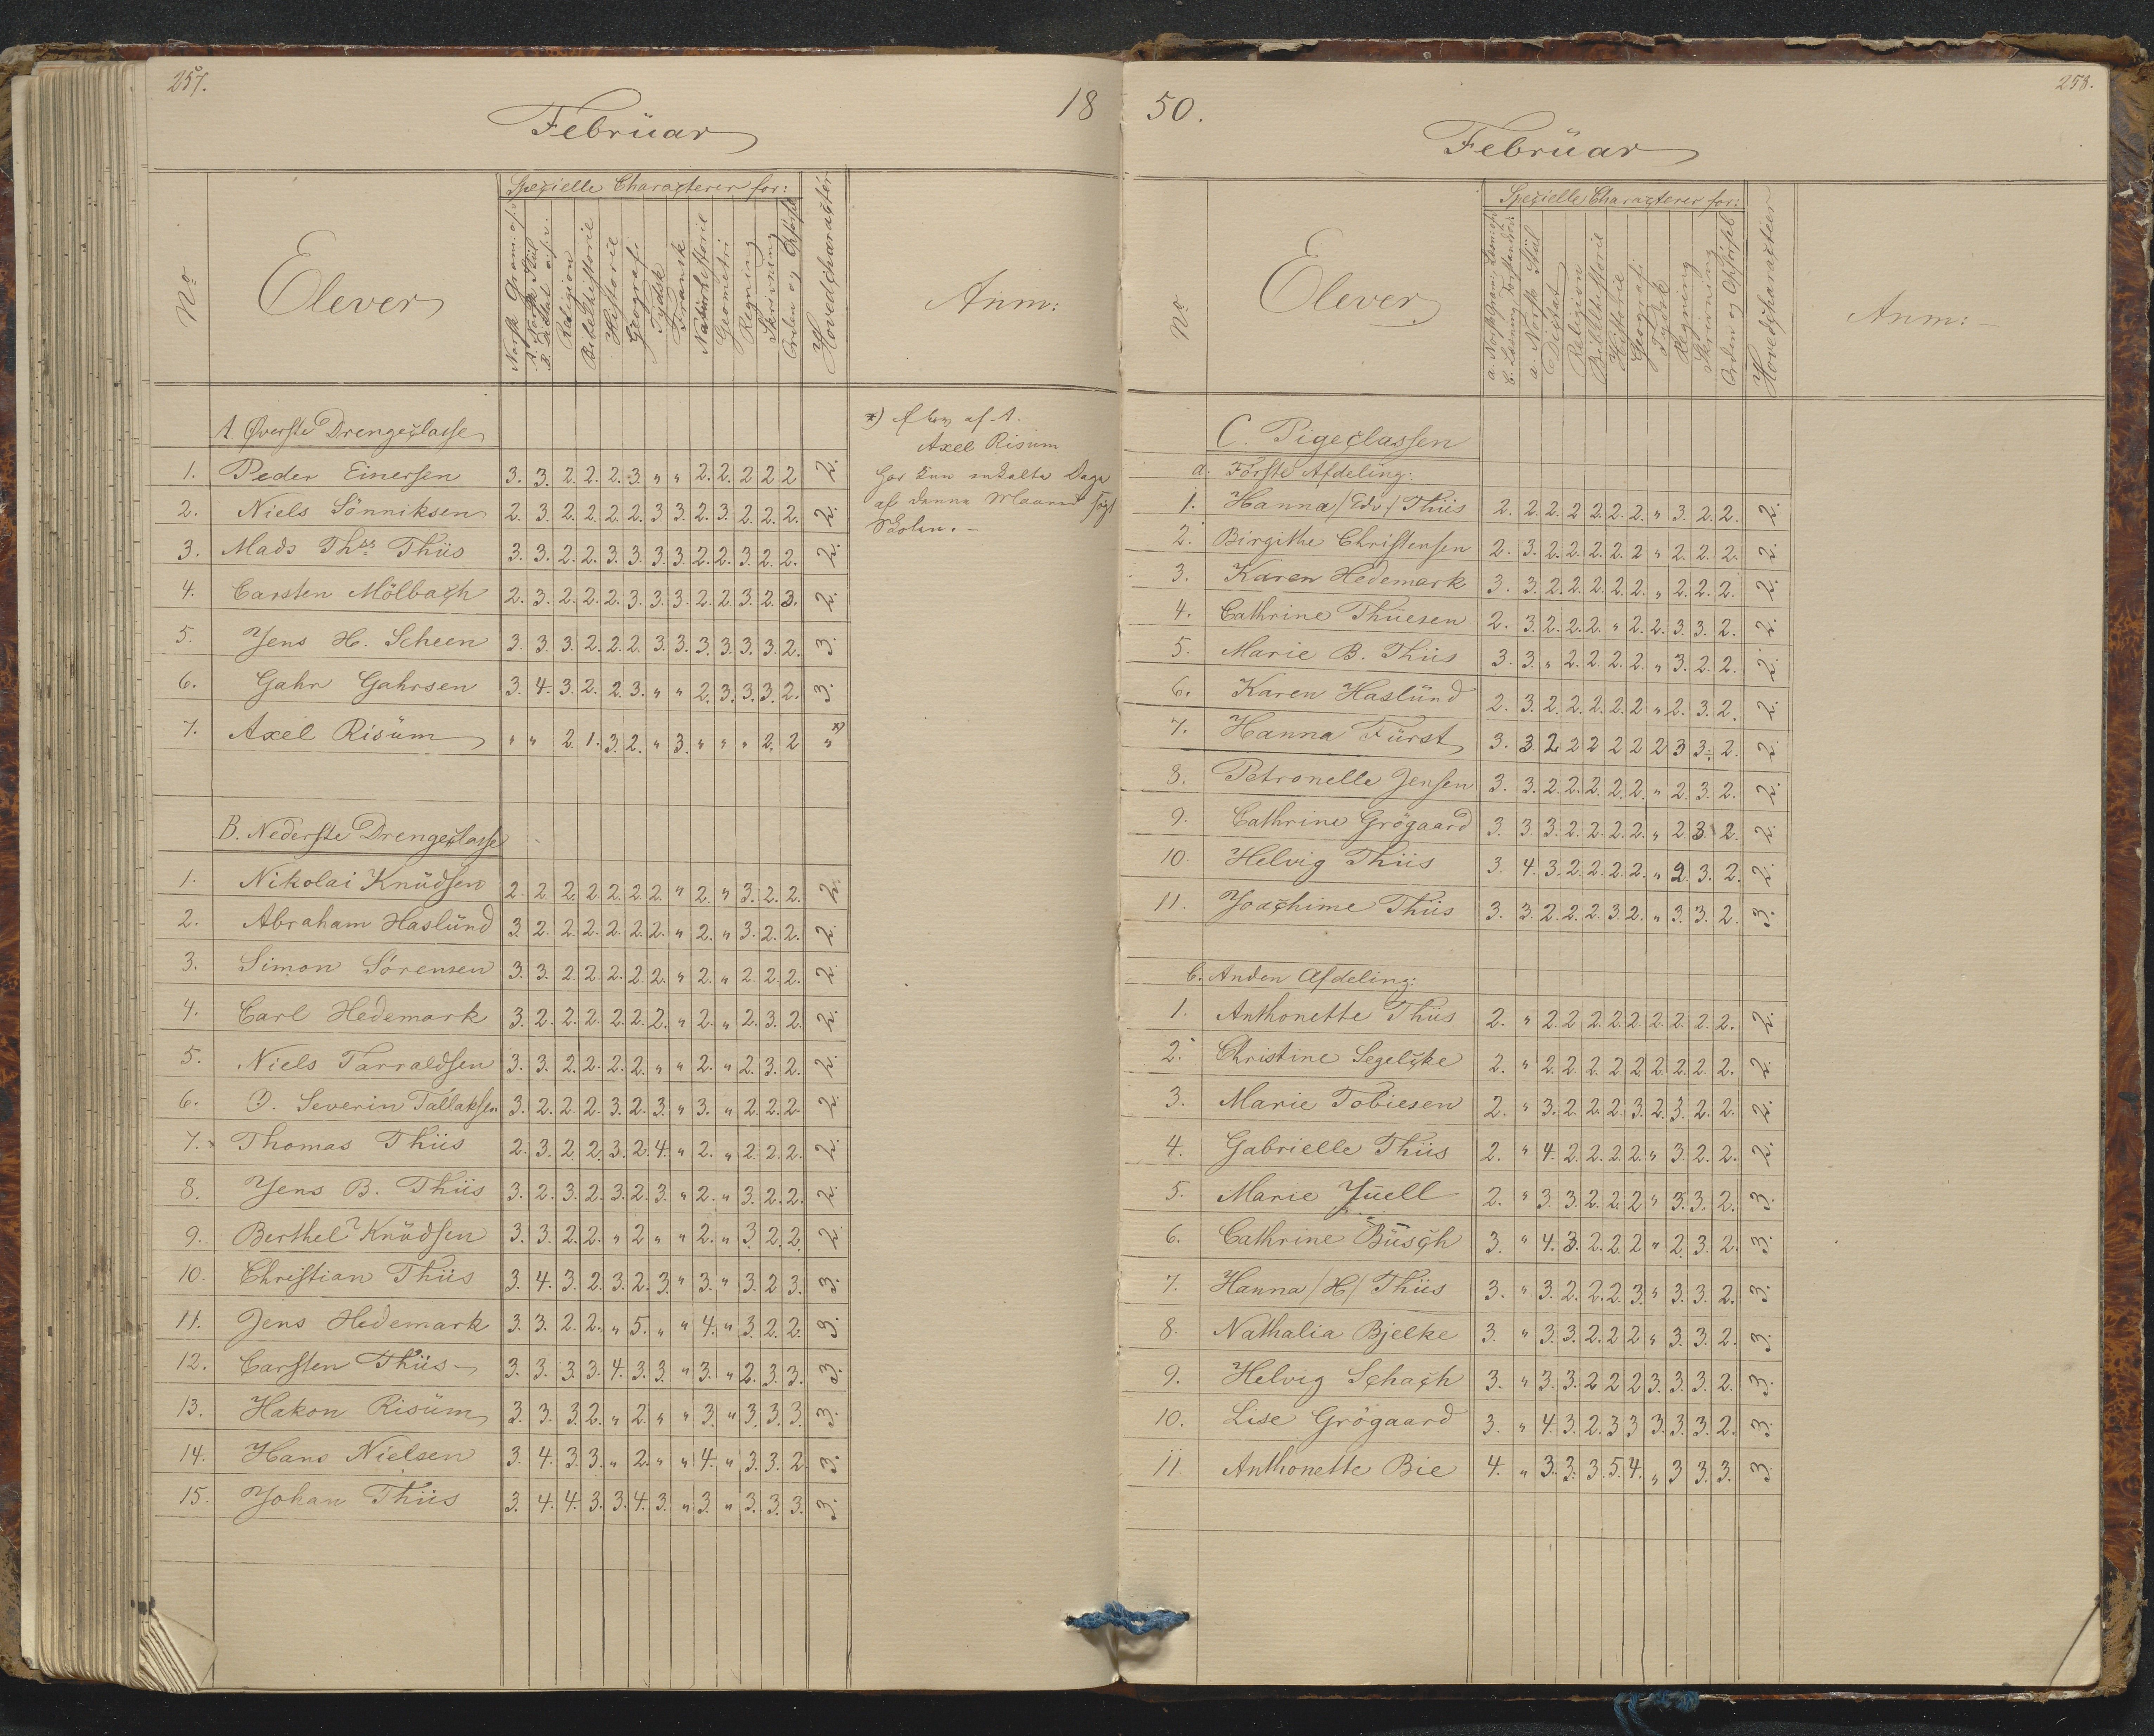 257.
18
Februar
No
Elever
Specielle Characterer for:
Norsk Gram: osv.
A. Norsk Stiil
B. Dictat osv.
Religion
Bibelhistorie
Historie
Geografi
Tydsk
Fransk
Naturhistorie
Geometri
Regning
Skrivning
Orden og Opførsel
Hovedcharacter
Anm:
A Øverste Drengeclasse
1. Peder Einersen 3. 3. 2. 2. 2. 3. " " 2. 2. 2. 2 2 2.
2. Niels Sönniksen 2. 3. 2. 2. 2. 2. 3 3. 2. 3. 2. 2. 2. 2.
3. Mads Ths. Thiis 3. 3. 2. 2. 3. 3. 3. 3. 2. 2. 3. 2. 2. 2.
4. Carsten Mölbach 2. 3. 2. 2. 2. 3. 3. 3. 2. 2. 3. 2. 3. 2.
5. Jens H. Scheen 3. 3. 3. 2. 2. 2. 3. 3. 3. 3. 3. 3. 2. 3.
6. Gahr Gahrsen 3. 4. 3. 2. 2. 3. " " 2. 3. 3. 3. 2. 3.
7. Axel Risüm " " 2. 1. 3. 2. " 3. " " " 2. 2 " *)
*) Elev af A.
Axel Risüm
har kun enkelte Dage
af denne Maaned søgt
Skolen. –
B. Nederste Drengeclasse
1. Nikolai Knüdsen 2. 2. 2. 2. 2. 2. 2. " 2. " 3. 2. 2. 2.
2. Abraham Haslünd 3. 2. 2. 2. 2. 2. 2. " 2. " 3. 2. 2. 2.
3. Simon Sörensen 3. 3. 2. 2. 2. 2. 2. " 2. " 2. 2. 2. 2.
4. Carl Hedemark 3. 2. 2. 2. 2. 2. 2. " 2. " 2. 3. 2. 2.
5. Niels Tarraldsen 3. 3. 2. 2. 2. 2. " " 2. " 2. 3. 2. 2.
6. O. Severin Tallaksen 3. 2. 2. 2. 3. 2. 3. " 3. " 2. 2. 2. 2.
7. Thomas Thiis 2. 3. 2. 2. 3. 2. 4. " 2. " 2. 2. 2. 2.
8. Jens B. Thiis 3. 2. 3. 2. 3. 2. 3. " 2. " 3. 2. 2. 2.
9. Berthel Knüdsen 3. 3. 2. 2. " 2 " " 2. " 3. 2. 2. 2.
10. Christian Thiis 3. 4. 3. 2. 3. 2. 3. " 3. " 3. 2 3. 3.
11. Jens Hedemark 3. 3. 2. 2. " 5. " " 4. " 3. 2. 2. 3.
12. Carsten Thiis 3. 3. 3. 3. 4. 3. 3. " 3. " 2. 3. 3. 3.
13. Hakon Risüm 3. 3. 3. 2. " 2. " " 3. " 3. 3. 3. 3.
14. Hans Nielsen 3. 4. 3. 3. " 2. " " 4. " 3. 3. 2. 3.
15. Johan Thiis 3. 4. 4. 3. 3. 4. 3. " 3. " 3. 3. 3. 3.
50.
258.
Februar
No
Elever
Specielle Characterer for:
a. Norsk Gram, Læsn: osv.
b. Læsning, Forstandöv:
a. Norsk Stiil
Dictat
Religion
Bibelhistorie
Historie
Geografi
Tydsk
Regning
Skrivning
Orden og Opførsel
Hovedcharacter
Anm: –
C. Pigeclassen
a. Første Afdeling:
1. Hanna /Edv./ Thiis 2. 2. 2. 2 2. 2. 2. " 3. 2. 2. 2.
2. Birgithe Christensen 2. 3. 2. 2. 2. 2. 2 " 2. 2. 2. 2.
3. Karen Hedemark 3. 3. 2. 2. 2. 2. 2. " 2. 2. 2. 2.
4. Cathrine Thuesen 2. 3. 2. 2. 2. " 2. 2. 3. 3. 2. 2.
5. Marie B. Thiis 3. 3. " 2. 2. 2. 2. " 3. 2. 2. 2.
6. Karen Haslünd 2. 3. 2. 2. 2. 2. 2 " 2. 3. 2. 2.
7. Hanna Fürst 3. 3 2. 2 2 2 2 2 3 3. 2. 2.
8. Petronelle Jensen 3. 3. 2. 2. 2. 2. 2. " 2. 3. 2. 2.
9. Cathrine Grögaard 3. 3. 3. 2. 2. 2. 2. " 2. 3. 2. 2.
10. Helvig Thiis 3. 4. 3. 2. 2. 2. 2. " 2. 3. 2. 2.
11. Joachime Thiis 3. 3. 2. 2. 2. 3. 2. " 3. 3. 2. 3.
b. Anden Afdeling:
1. Anthonette Thiis 2. " 2. 2 2. 2. 2. 2. 2. 2. 2. 2.
2. Christine Segelcke 2. " 2. 2. 2. 2. 2. 2. 2. 2. 2. 2.
3. Marie Tobiesen 2. " 3. 2. 2. 2. 3. 2. 3. 2. 2. 2.
4. Gabrielle Thiis 2. " 4. 2. 2. 2. 2. " 3. 2. 2. 2.
5. Marie Jüell 2. " 3. 3. 2. 2. 2 " 3. 3. 2. 3.
6. Cathrine Büsch 3. " 4. 3. 2. 2. 2 " 2. 3. 2. 3.
7. Hanna /H/ Thiis 3. " 3. 2. 2. 2. 3. " 3. 3. 2. 3.
8. Nathalia Bjelke 3. " 3. 3. 2. 2 2 " 3. 3. 2. 3.
9. Helvig Schach 3. " 3. 3. 2 2 2 3. 3. 3. 2. 3.
10. Lise Grögaard 3. " 4. 3. 2. 3 3 3. 3. 3. 2. 3.
11. Anthonette Bie 4. " 3. 3. 3 5. 4. " 3 3. 3. 3.